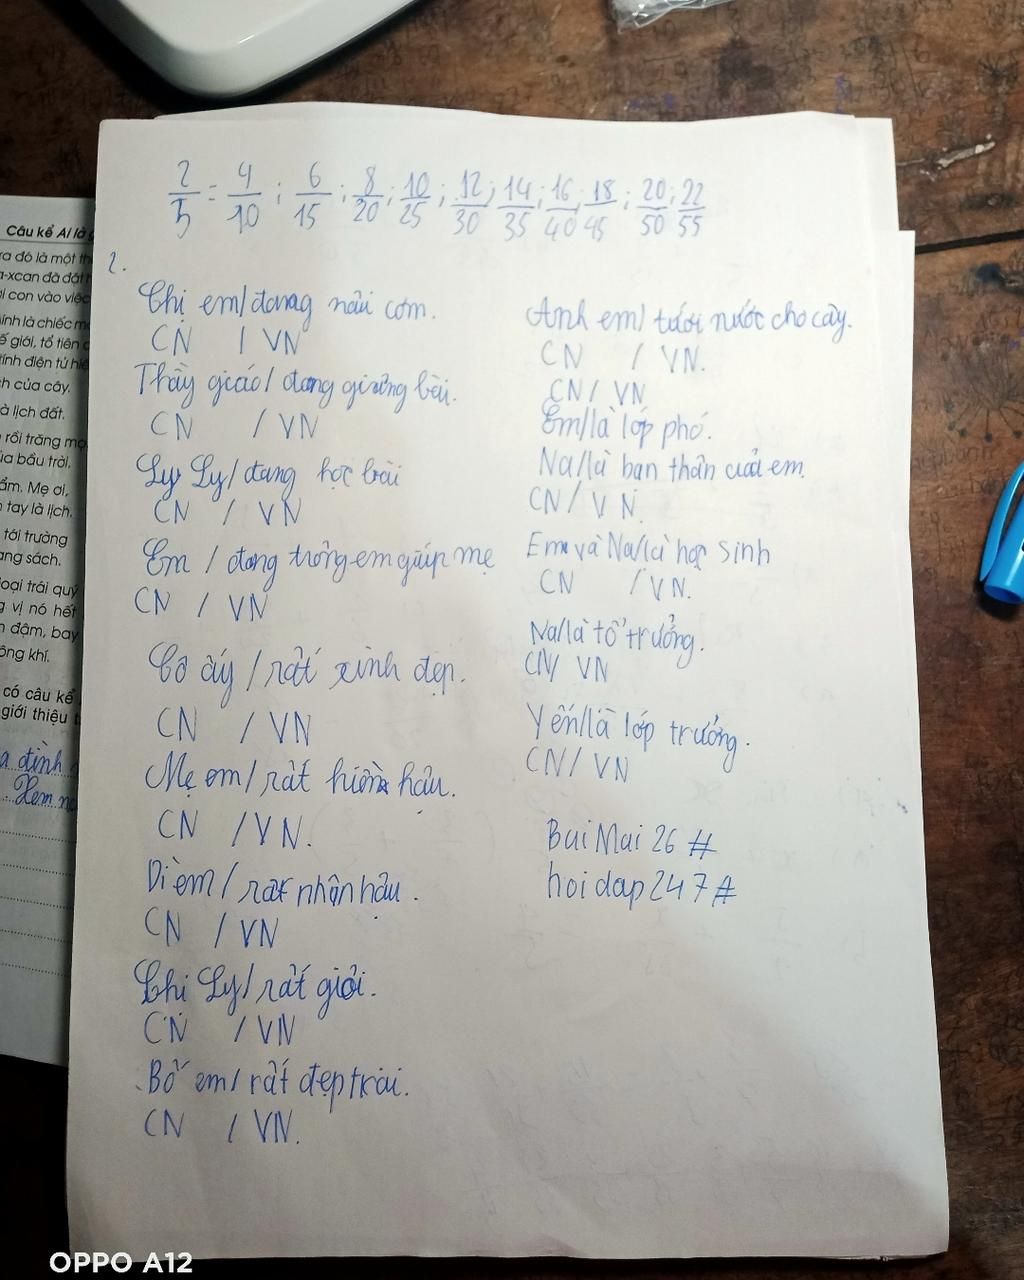 2/5 = 4/10 ; 6/15 ; 8/20 ; 10/25 ; 12/30 ; 14/35 ; 16/40 ; 18/45 ; 20/50 ; 22/55
2.
Chị em/ đang nấu cơm.
CN / VN
Thầy giáo/ đang giảng bài.
CN / VN
Ly Ly/ đang học bài
CN / VN
Em / đang trông em giúp mẹ
CN / VN
Cô ấy / rất xinh đẹp.
CN / VN
Mẹ em/ rất hiền hậu.
CN / VN.
Dì em/ rất nhân hậu.
CN / VN
Chị Ly/ rất giỏi.
CN / VN
Bố em/ rất đẹp trai.
CN / VN.
Anh em/ tưới nước cho cây.
CN / VN.
CN/ VN
Em/là lớp phó.
Na/là bạn thân của em.
CN/ VN.
Em và Na/là học sinh
CN / VN.
Na/là tổ trưởng.
CN/ VN
Yến/là lớp trưởng.
CN/ VN
Bui Mai 26 #
hoi dap 247#
Câu kể Ai là
ra đó là một th
a-xcan đã đặt
ời con vào việc
hính là chiếc m
ế giới, tổ tiên
tính điện tử hiệ
ch của cây.
à lịch đất.
rồi trăng mọ
ủa bầu trời.
ẩm. Mẹ ơi,
tay là lịch.
tới trường
ang sách.
loại trái quý
vị nó hết
đậm, bay
ông khí.
có câu kể
giới thiệu
a đình
Xem
OPPO A12